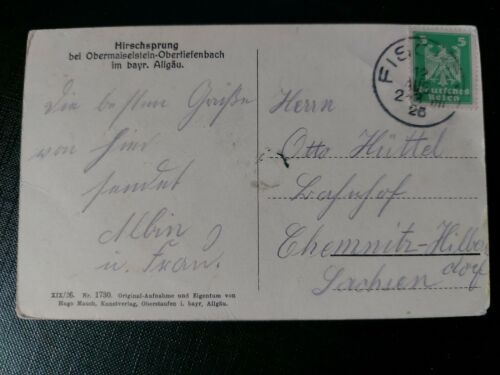 Hirschsprung
bei Obermaiselstein-Obertiefenbach
im bayr. Allgäu.
Die besten Grüße
von hier
sendet
Albin
u. Frau.
Herrn
Otto Hüttel
Bahnhof
Chemnitz-Hilbers
dorf
Sachsen
5 5
Deutsches
Reich
FIS
26
XIX/26. Nr. 1730. Original-Aufnahme und Eigentum von
Hugo Mauch, Kunstverlag, Oberstaufen i. bayr. Allgäu.